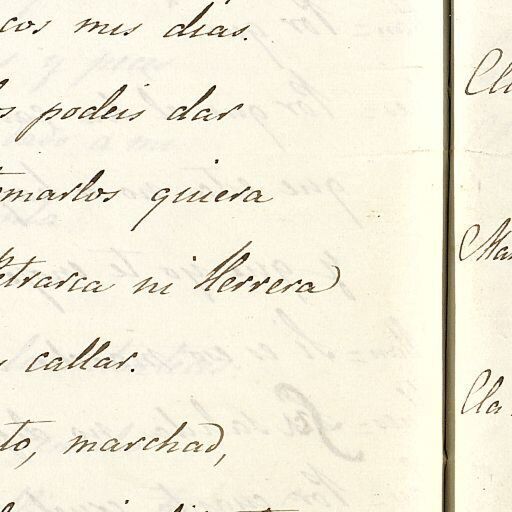 cos mis dias.
os podeis dar
marlos quiera
Petrarca ni Herrera
callar.
to, marchad,
Cla
Mar
Cla